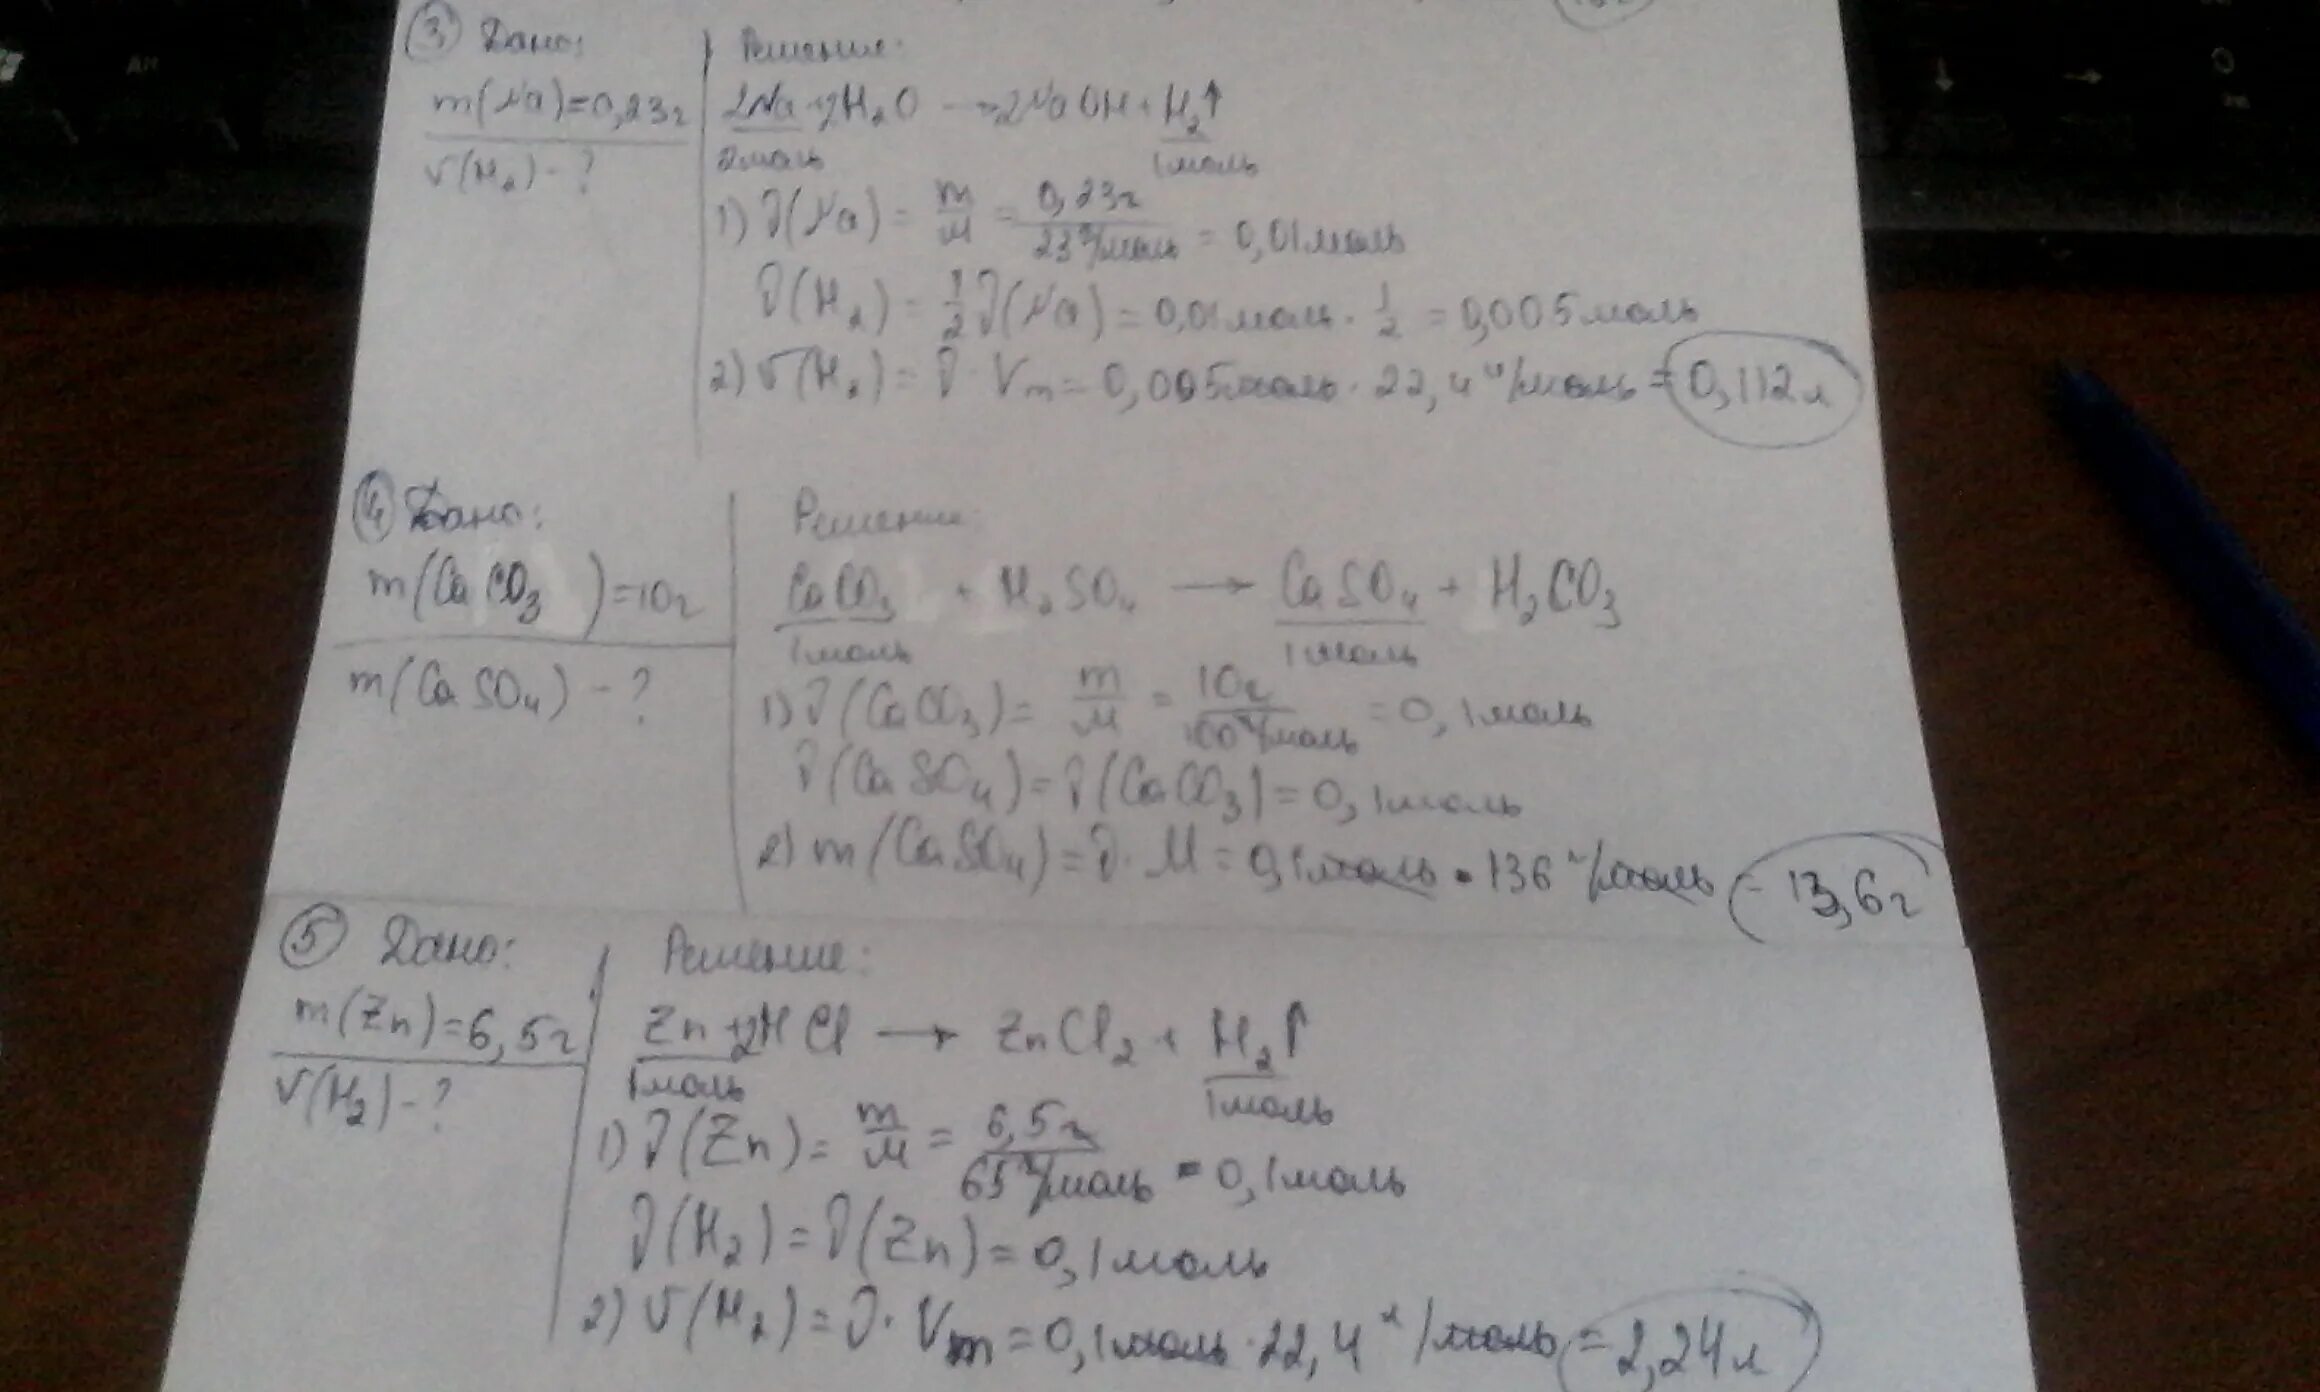 ③ Дано: Решение:
m(Na)=0,23г 2Na+2H₂O → 2NaOH + H₂↑
V(H₂) - ? 2моль 1моль
1) ν(Na) = m/M = 0,23г/23г/моль = 0,01моль
ν(H₂) = 1/2 ν(Na) = 0,01моль · 1/2 = 0,005моль
2) V(H₂) = ν · Vm = 0,005моль · 22,4л/моль = 0,112л
④ Дано: Решение:
m(CaCO₃)=10г CaCO₃ + H₂SO₄ → CaSO₄ + H₂CO₃
1моль 1моль
m(CaSO₄) - ? 1) ν(CaCO₃) = m/M = 10г/100г/моль = 0,1моль
ν(CaSO₄) = ν(CaCO₃) = 0,1моль
2) m(CaSO₄) = ν · M = 0,1моль · 136г/моль = 13,6г
⑤ Дано: Решение:
m(Zn)=6,5г Zn+2HCl → ZnCl₂ + H₂↑
V(H₂) - ? 1моль 1моль
1) ν(Zn) = m/M = 6,5г/65г/моль = 0,1моль
ν(H₂) = ν(Zn) = 0,1моль
2) V(H₂) = ν · Vm = 0,1моль · 22,4л/моль = 2,24л